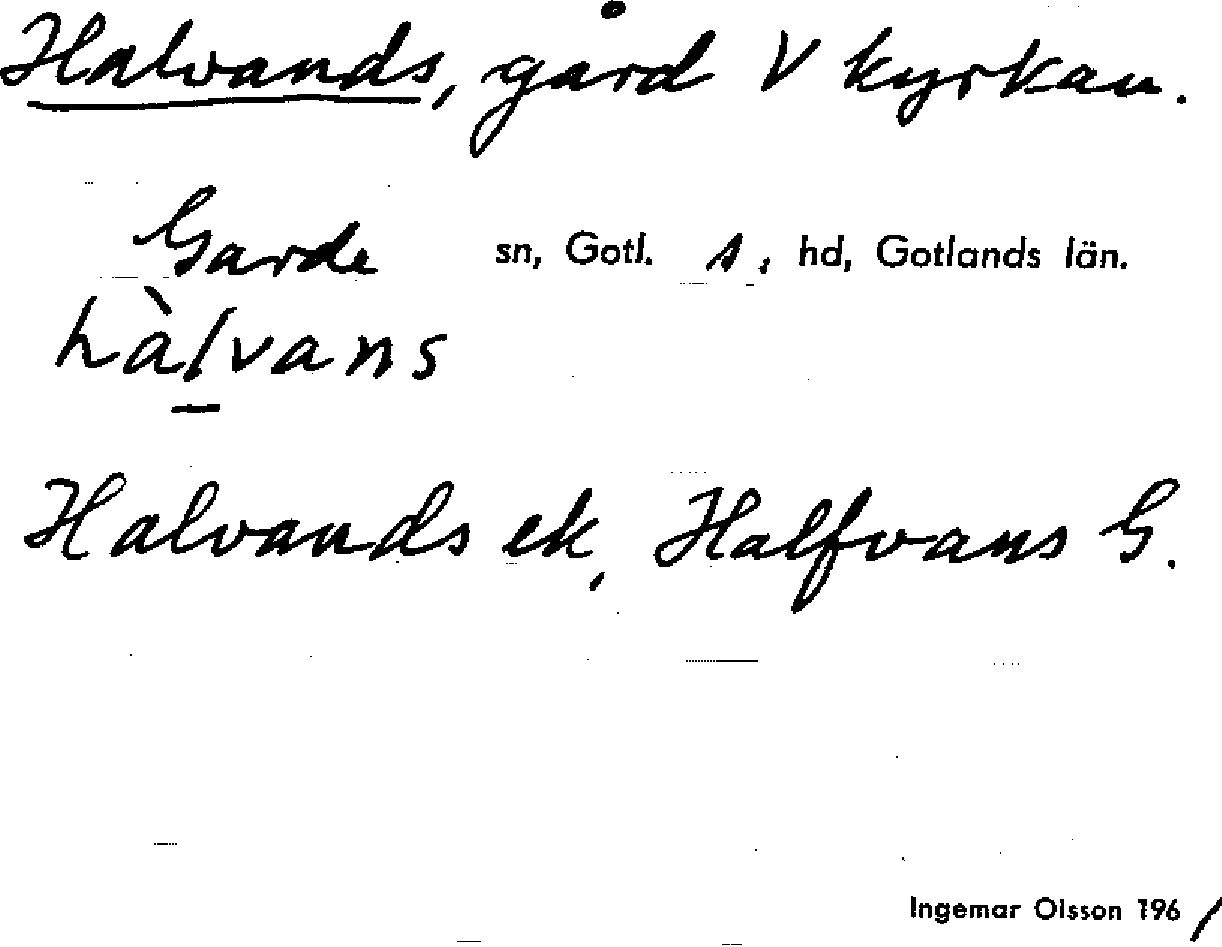 Halvands, gård V kyrkan.
Garde sn, Gotl. s, hd, Gotlands län.
hàlvans
Halvands ek, Halfvans G.
Ingemar Olsson 1961